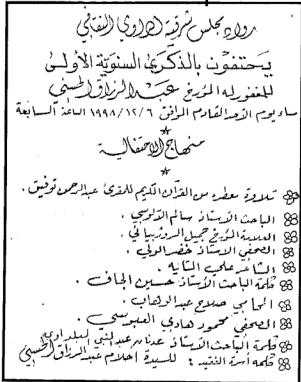 رواد مجلس شرفية الراوي الثقافي
يحتفون بالذكرى السنوية الأولى
للمغفور له المؤرخ عبد الرزاق الحسني
مساء يوم الأحد القادم الموافق ١٩٩٨/١٢/٦ الساعة السابعة
منهاج الاحتفالية
تلاوة معطره من القرآن الكريم للمقرئ عبد الرحمن توفيق .
الباحث الأستاذ سالم الآلوسي .
العلامة المؤرخ جميل الروزبياني .
الصحفي الأستاذ خضر الولي .
الشاعر علي
كلمة الباحث الأستاذ حسين الجاف .
المحامي صلاح عبد الوهاب .
الصحفي محمود هادي
كلمة الباحث الأستاذ عدنان عبد النبي البلداوي
كلمة أسرة الفقيد : للسيدة احلام عبد الرزاق الحسني